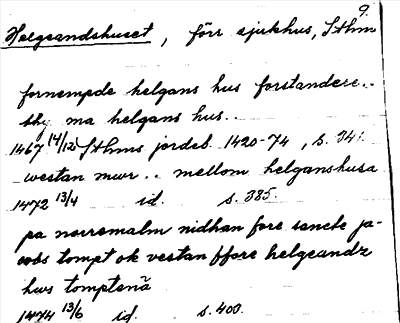 9.
Helgeandshuset, förr sjukhus, Sthm
fornempde helgans hus forstandere..
thy ma helgans hus..
1467 14/12 Sthms jordeb. 1420-74, s. 341.
westan mwr .. mellom helganshusa
1472 13/4 id. s. 385.
pa norremalm nidhan fore sancte ja-
cobs tompt ok vestan ffore helgeandz
hws tomptenä
1474 13/6 id. s. 400.